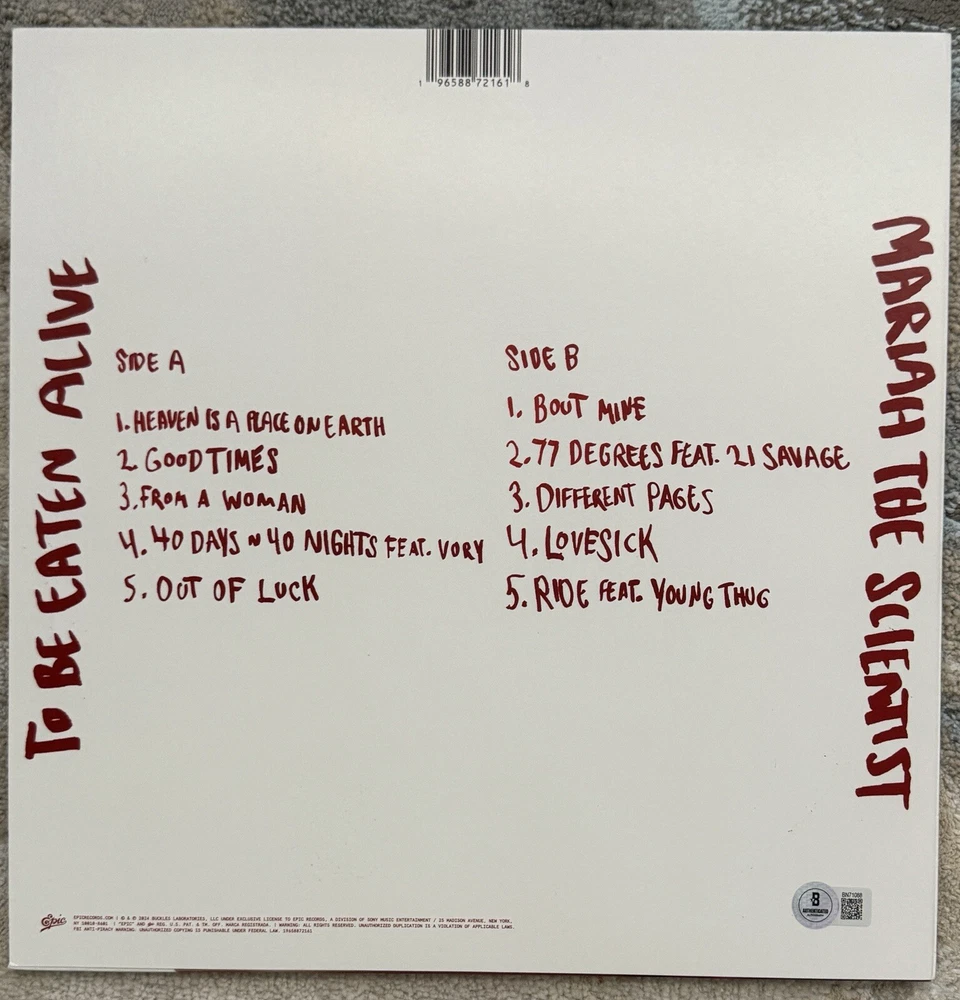 1 96588 72161 8
TO BE EATEN ALIVE
SIDE A
1. HEAVEN IS A PLACE ON EARTH
2. GOOD TIMES
3. FROM A WOMAN
4. 40 DAYS n 40 NIGHTS FEAT. VORY
5. OUT OF LUCK
SIDE B
1. BOUT MINE
2. 77 DEGREES FEAT. 21 SAVAGE
3. DIFFERENT PAGES
4. LOVESICK
5. RIDE FEAT. YOUNG THUG
MARIAH THE SCIENTIST
Epic
EPICRECORDS.COM | ℗ & © 2024 BUCKLES LABORATORIES, LLC UNDER EXCLUSIVE LICENSE TO EPIC RECORDS, A DIVISION OF SONY MUSIC ENTERTAINMENT / 25 MADISON AVENUE, NEW YORK,
NY 10010-8601 | "EPIC" AND REG. U.S. PAT. & TM. OFF. MARCA REGISTRADA. | WARNING: ALL RIGHTS RESERVED. UNAUTHORIZED DUPLICATION IS A VIOLATION OF APPLICABLE LAWS.
FBI ANTI-PIRACY WARNING: UNAUTHORIZED COPYING IS PUNISHABLE UNDER FEDERAL LAW. 19658872161
B
AUTHENTICATED
BN71088